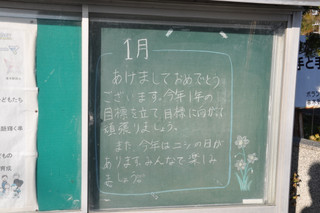 1月
あけましておめでとう
ございます。今年1年の
目標を立て、目標に向かって
頑張りましょう。
また、今年はニシの日が
あります。みんなで楽しみ
ましょう。